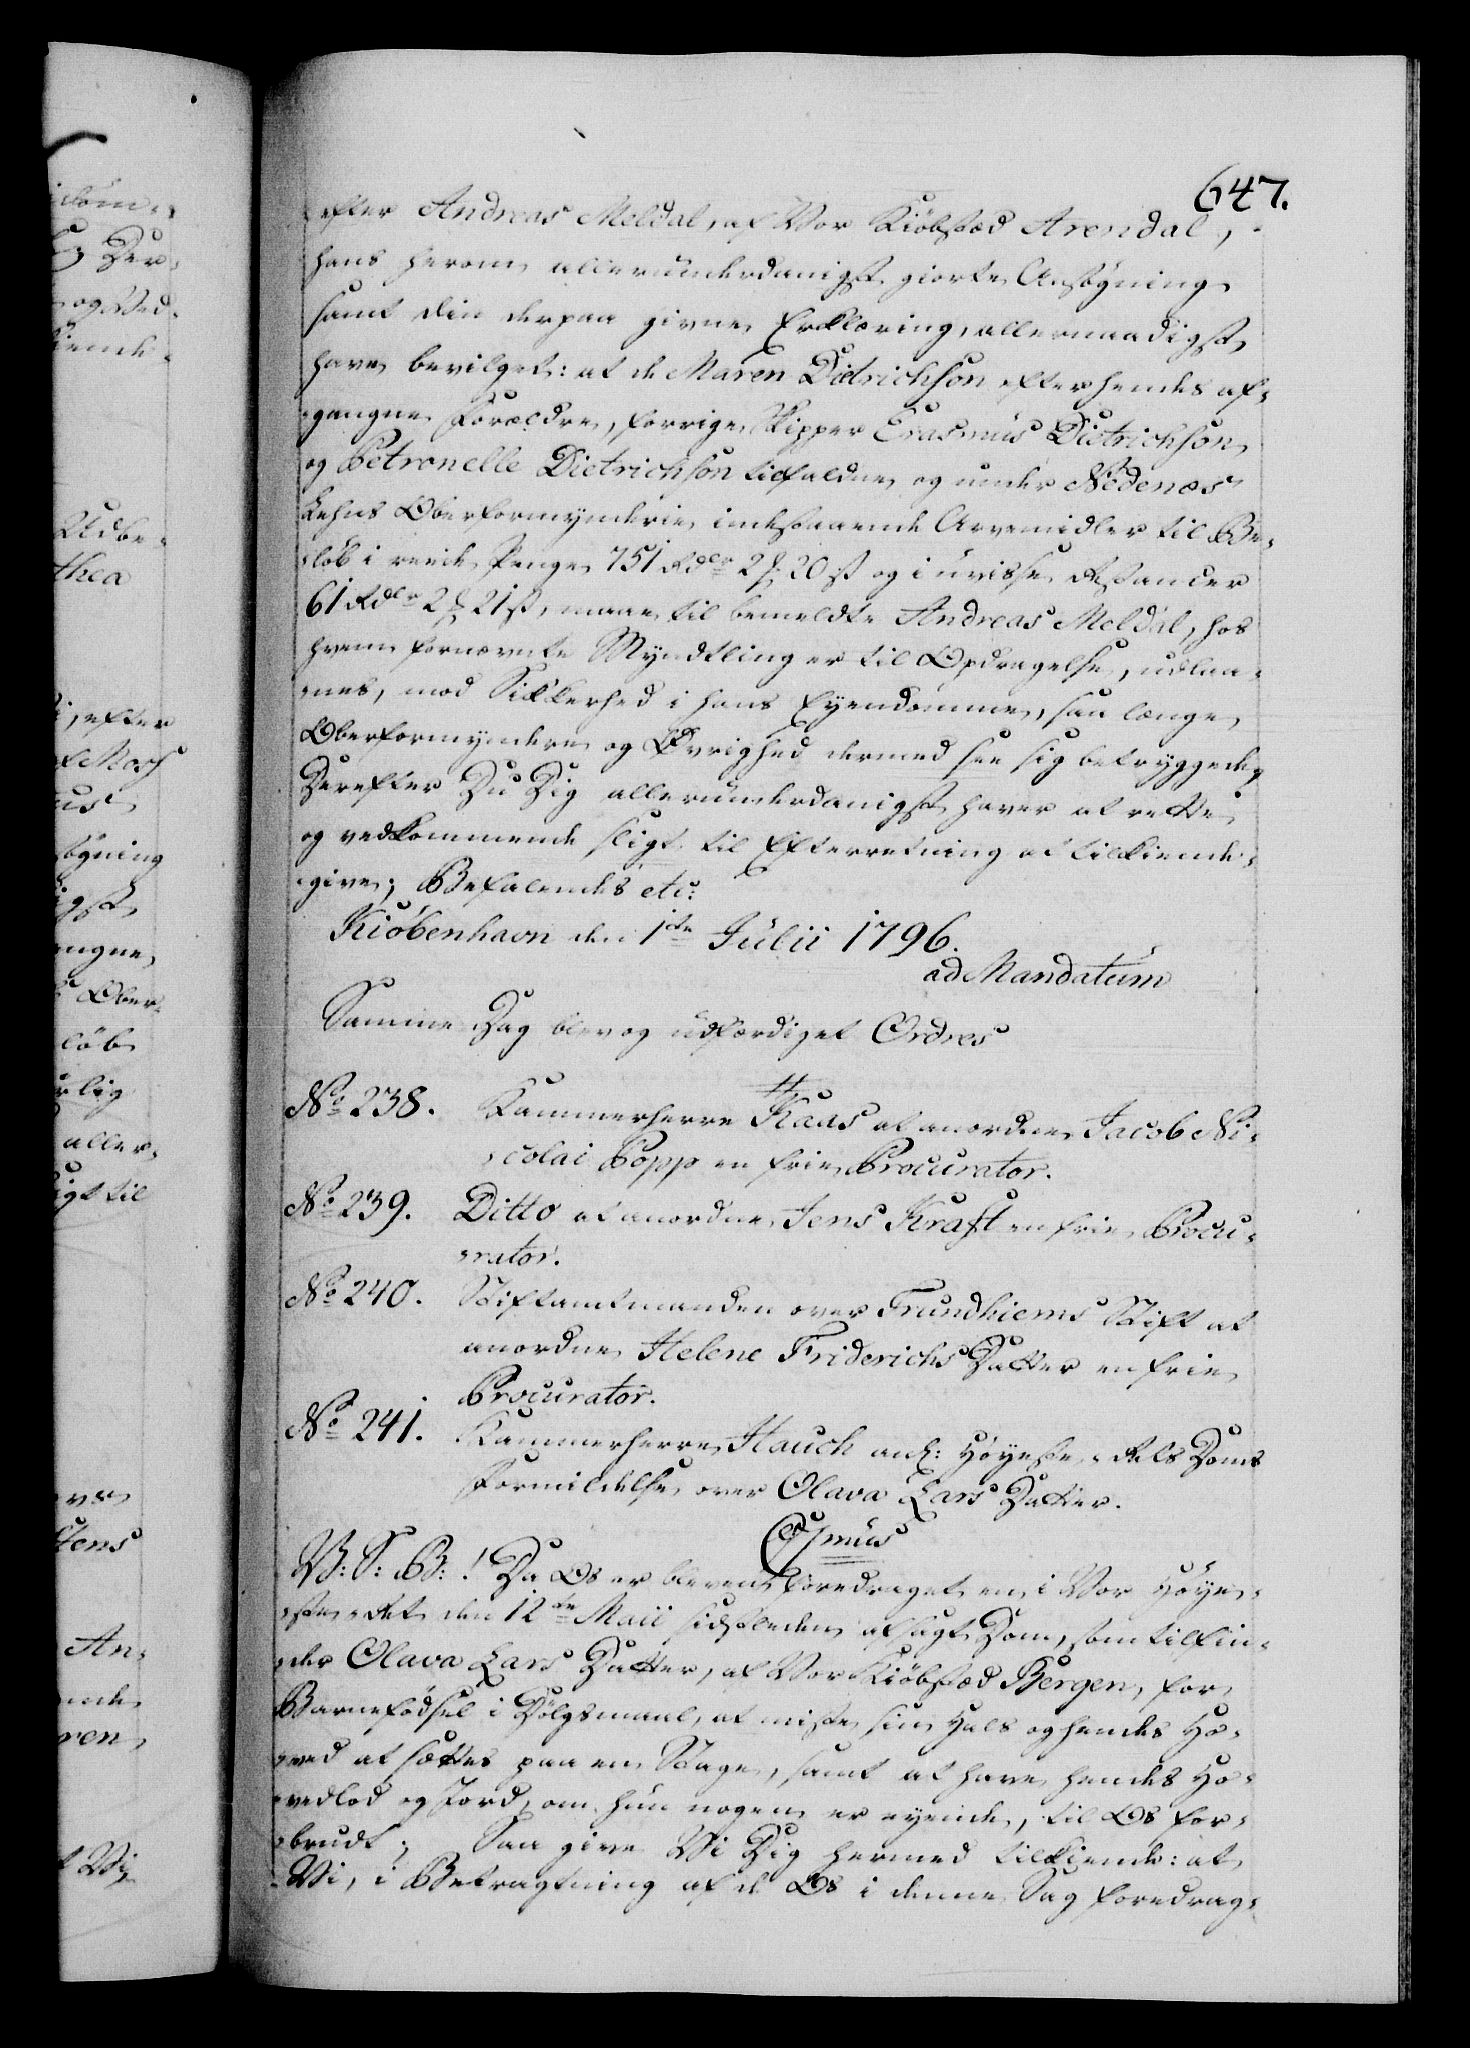 647.
efter Andreas Meldal, af Vor Kiöbstæd Arendal,
hans herom allerunderdanigst giorte Ansögning
samt din derpaa givne Erklæring, allernaadigst
have bevilget: at de Maren Didrichson efter hendes af-
gangne Forældre, forrige Skipper Erasmus Dietrichson
og Petronelle Dietrichson tilfaldne og under Nedenæs
Lehns Oberformynderie indestaaende Arvemidler til Be-
löb i reede Penge 751 Rdlr 2 ƒ 20 ß og i uvisse Restancer
61 Rdlr 2 ƒ 21 ß, maae til bemeldte Andreas Meldal, hos
hvem fornævnte Myndtling er til Opdragelse, udlaa-
nes, mod Sikkerhed i hans Eyendomme, saa længe
Oberformyndere og Øvrighed dermed see sig betryggede;
Derefter Du Dig allerunderdanigst haver at rette
og vedkommende sligt til Efterretning at tilkiende-
give; Befalendes etc:
Kiöbenhavn den 1te Julii 1796.
ad Mandatum
Samme Dag blev og udfærdiget Ordres
No 238. Kammerherre Kaas at anordne Jacob Ni-
colai Popp en frie Procurator.
No 239. Ditto at anordne Jens Kraft en frie Procu-
rator.
No 240. Stiftamtmanden over Trundhiems Stift at
anordne Helene Friderichs Datter en frie
Procurator.
No 241. Kammerherre Hauch anl: Höyeste-Rets Doms
Formildelse over Olava Lars Datter.
V: S: B:! Da Os er bleven foredraget en i Vor Höye-
ste-Ret den 12te Maii sidstleden afsagt Dom, som tilfin-
der Olava Lars Datter, af Vor Kiöbstæd Bergen, for
Barnefödsel i Dölgsmaal, at miste sin Hals og hendes Ho-
ved at sættes paa en Stage, samt at have hendes Ho-
vedlod og Jord, om hun nogen er eyende, til Os for-
brudt; Saa give Vi Dig hermed tilkiende: at
Vi, i Betragtning af de Os i denne Sag foredrag-